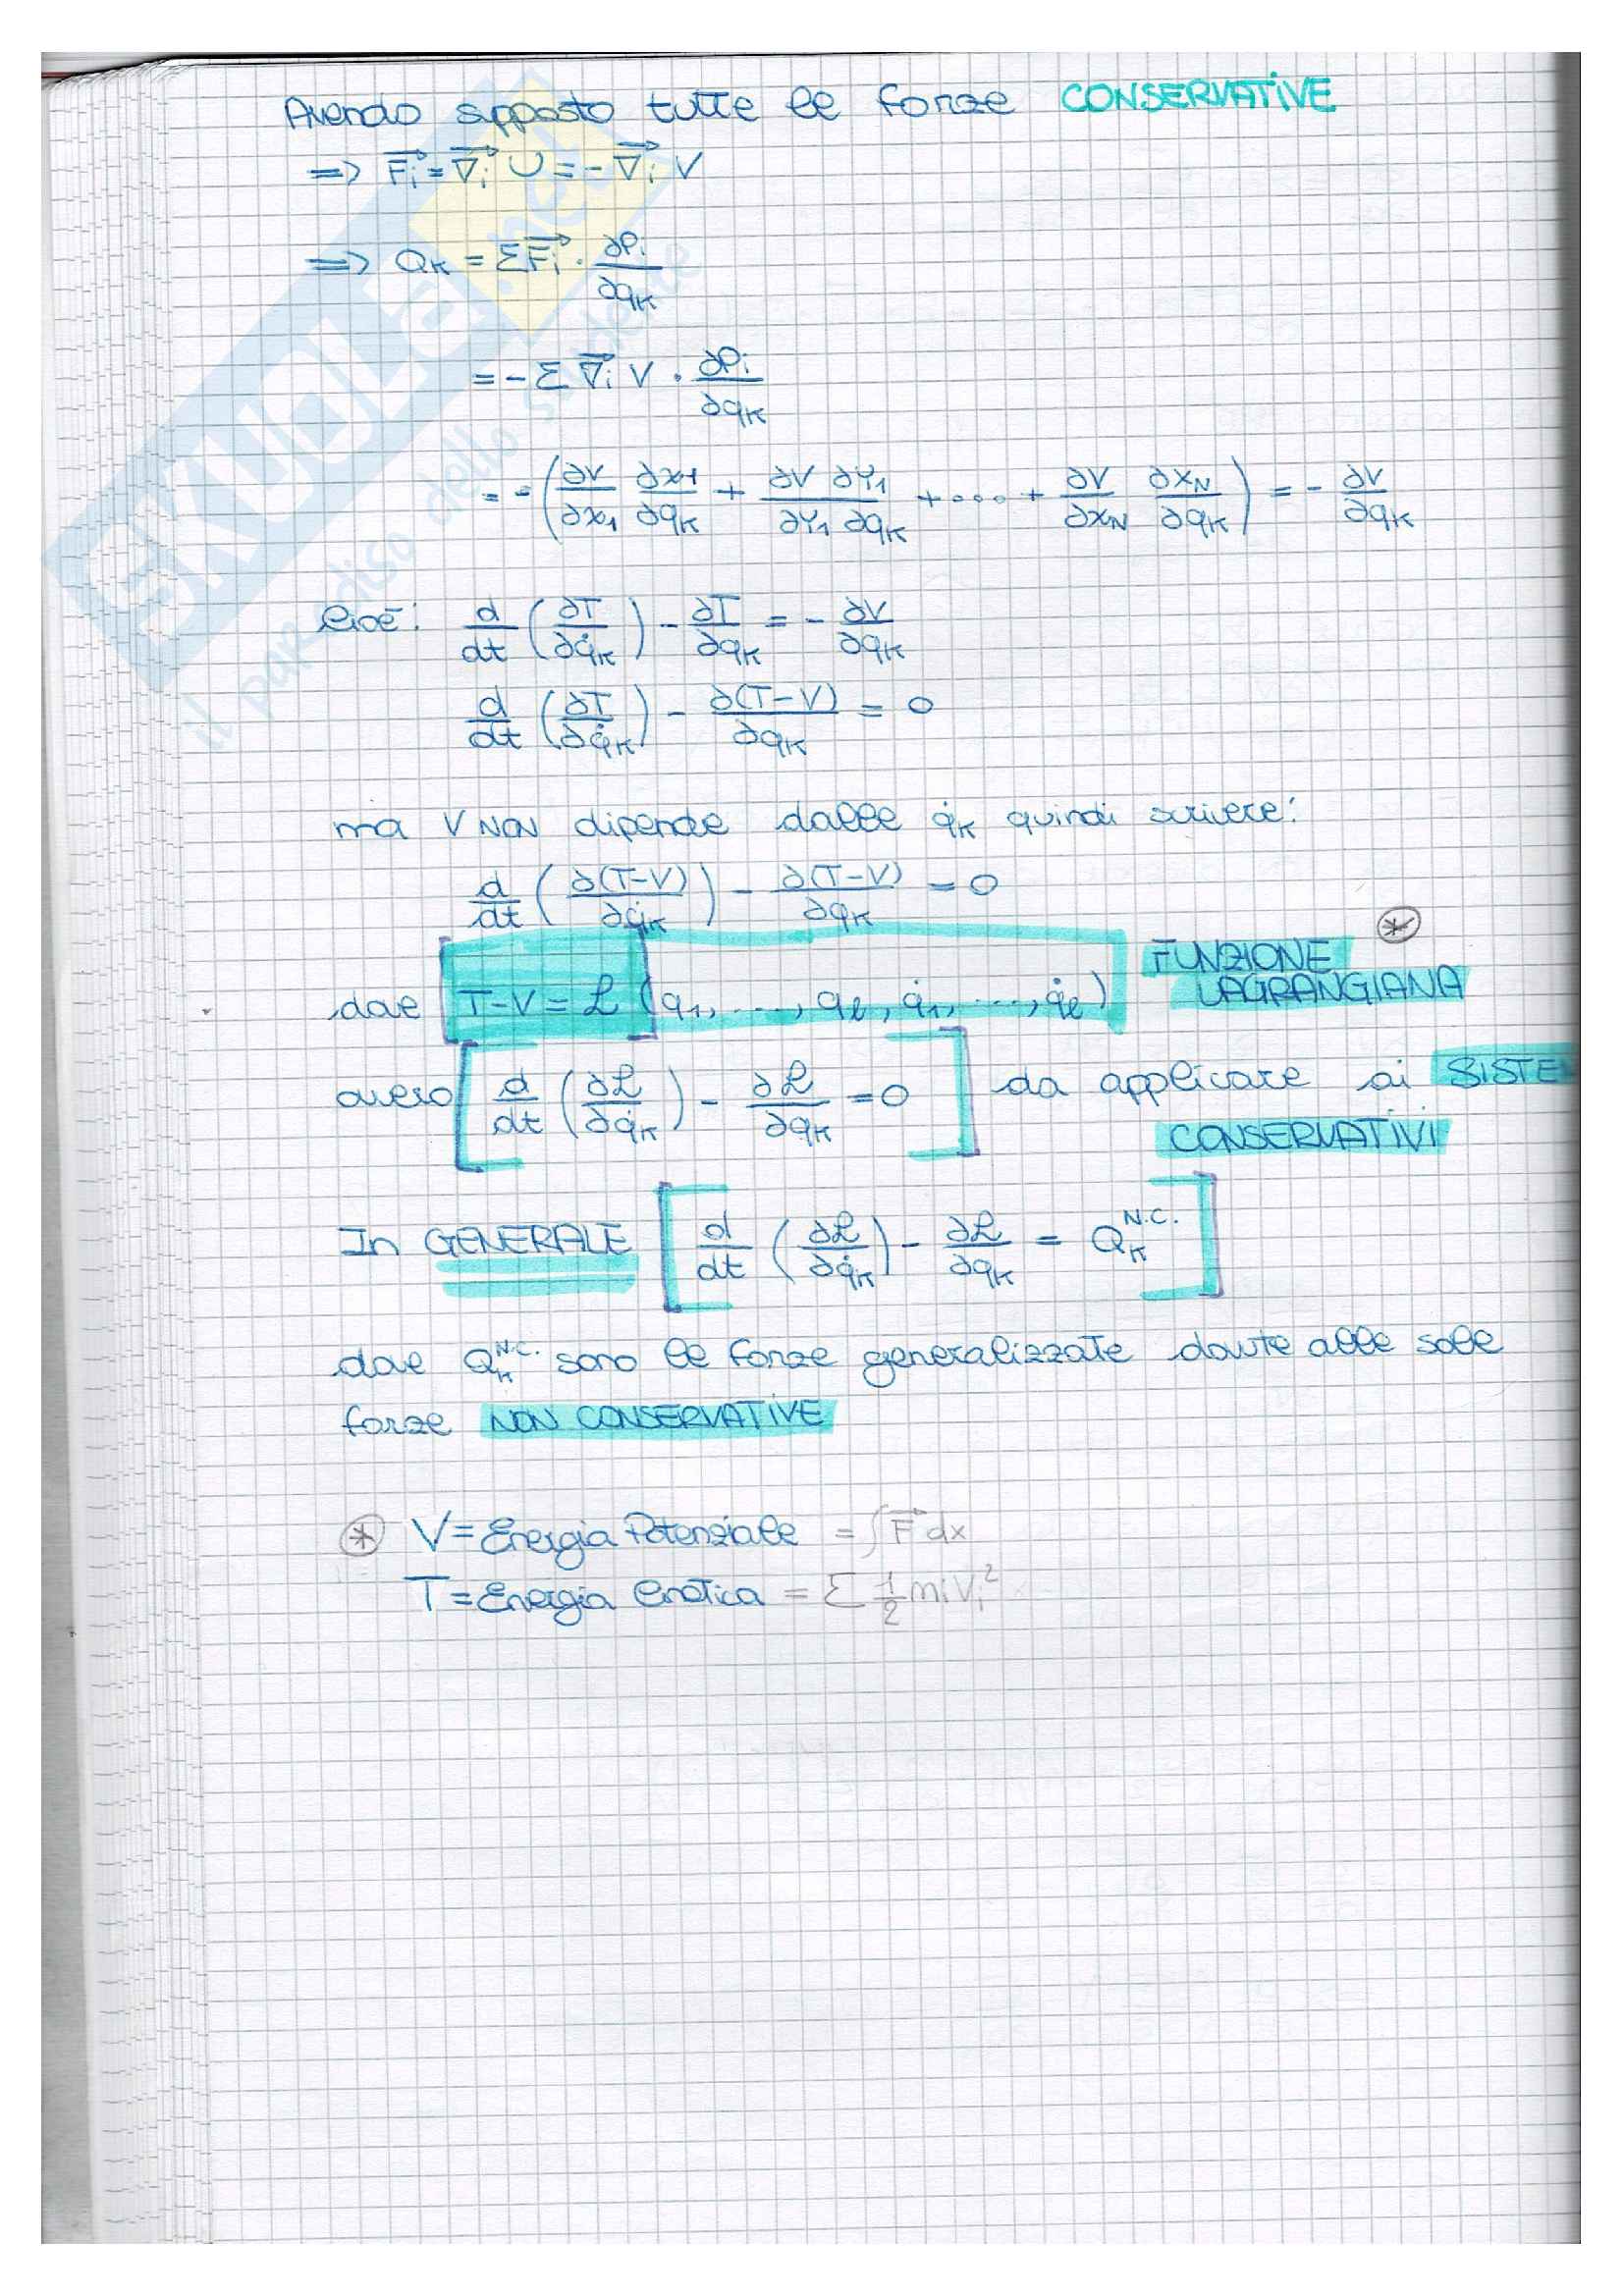 Avendo supposto tutte le forze CONSERVATIVE
=> F⃗i = ∇⃗i U = - ∇⃗i V
=> QK = Σ F⃗i · ∂Pi/∂qK
= - Σ ∇⃗i V · ∂Pi/∂qK
= - (∂V/∂x1 ∂x1/∂qK + ∂V/∂Y1 ∂Y1/∂qK + ... + ∂V/∂xN ∂xN/∂qK) = - ∂V/∂qK
Cioè: d/dt (∂T/∂q̇K) - ∂T/∂qK = - ∂V/∂qK
d/dt (∂T/∂q̇K) - ∂(T-V)/∂qK = 0
ma V NON dipende dalle q̇K quindi scrivere:
d/dt (∂(T-V)/∂q̇K) - ∂(T-V)/∂qK = 0
dove T-V = ℒ (q1, ..., qℓ, q̇1, ..., q̇ℓ) FUNZIONE LAGRANGIANA *
ovvero [d/dt (∂ℒ/∂q̇K) - ∂ℒ/∂qK = 0] da applicare ai SISTE
CONSERVATIVI
In GENERALE [d/dt (∂ℒ/∂q̇K) - ∂ℒ/∂qK = QK^N.C.]
dove QK^N.C. sono le forze generalizzate dovute alle sole
forze NON CONSERVATIVE
* V = Energia Potenziale = ∫ F⃗ dx
T = Energia Cinetica = Σ 1/2 mi Vi²
SKUOLA.net
il paradiso dello studente